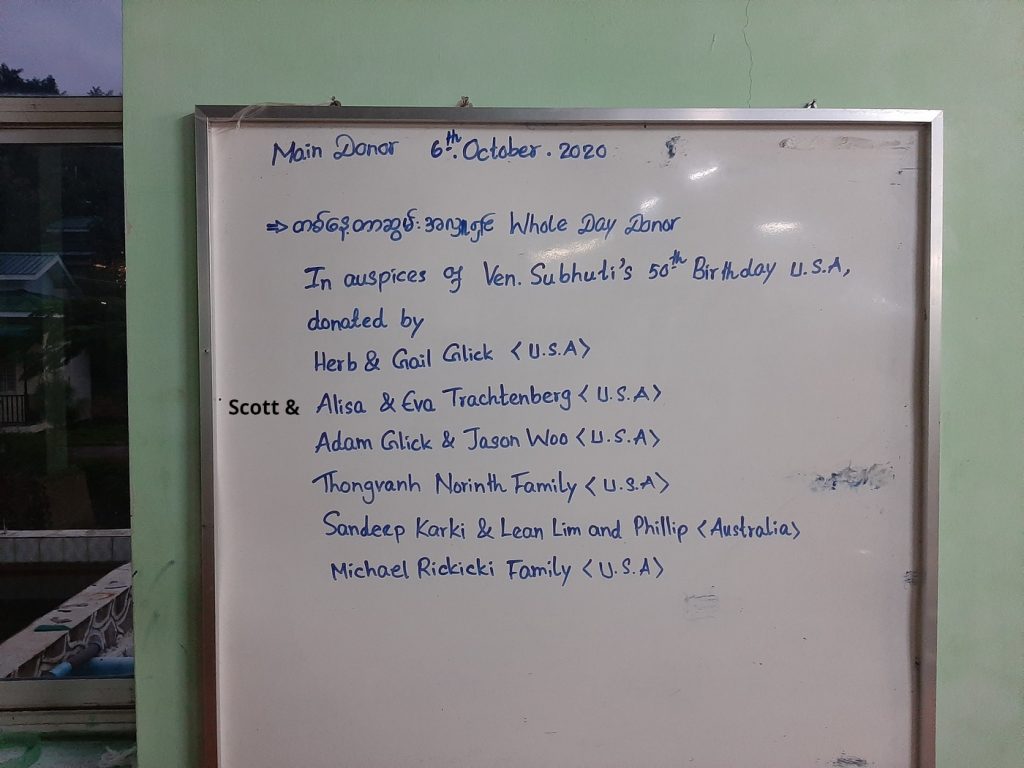 Main Donor 6th. October. 2020
⇒ တစ်နေ့တာဆွမ်းအလှူရှင် Whole Day Donor
In auspices of Ven. Subhuti's 50th Birthday U.S.A,
donated by
Herb & Gail Glick <U.S.A>
Scott & Alisa & Eva Trachtenberg <U.S.A>
Adam Glick & Jason Woo <U.S.A>
Thongvanh Norinth Family <U.S.A>
Sandeep Karki & Lean Lim and Phillip <Australia>
Michael Rickicki Family <U.S.A>